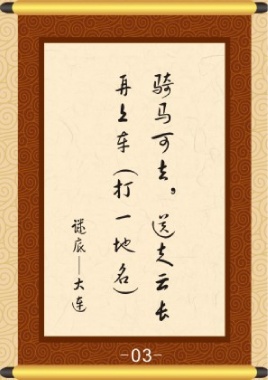 骑马可去，送走云长
再上车（打一地名）
谜底——大连
-03-